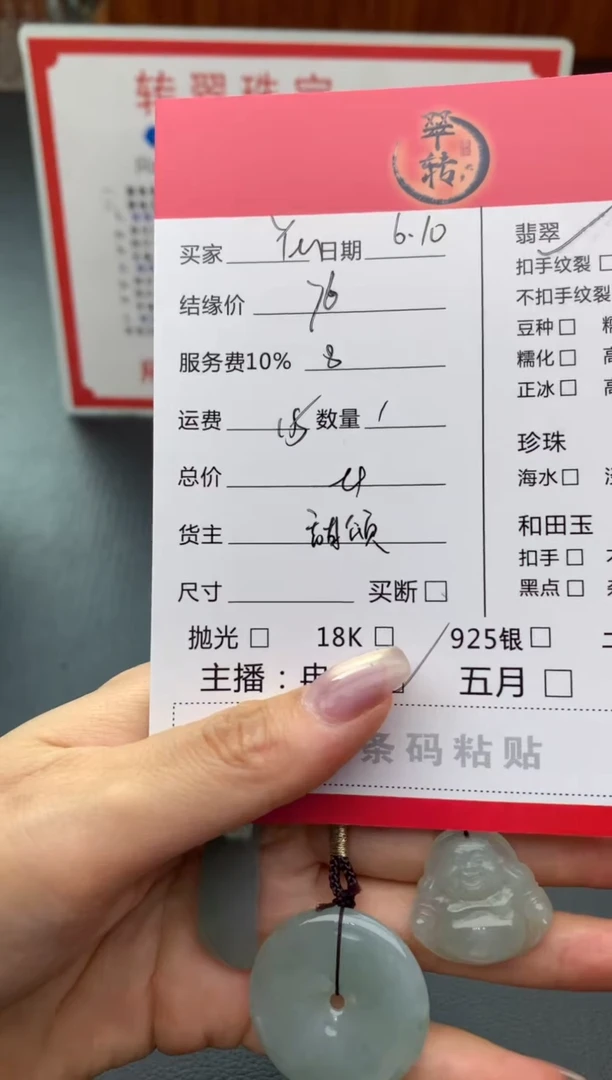 转翠珠宝
翠
转
买家 Yu 日期 6.10
结缘价 76
服务费10% 8
运费 15 数量 1
总价
货主 胡颂
尺寸 买断 □
抛光 □ 18K □ 925银 □
主播： □ 五月 □
条码粘贴
翡翠
扣手纹裂 □
不扣手纹裂
豆种 □
糯化 □
正冰 □
珍珠
海水 □
和田玉
扣手 □
黑点 □